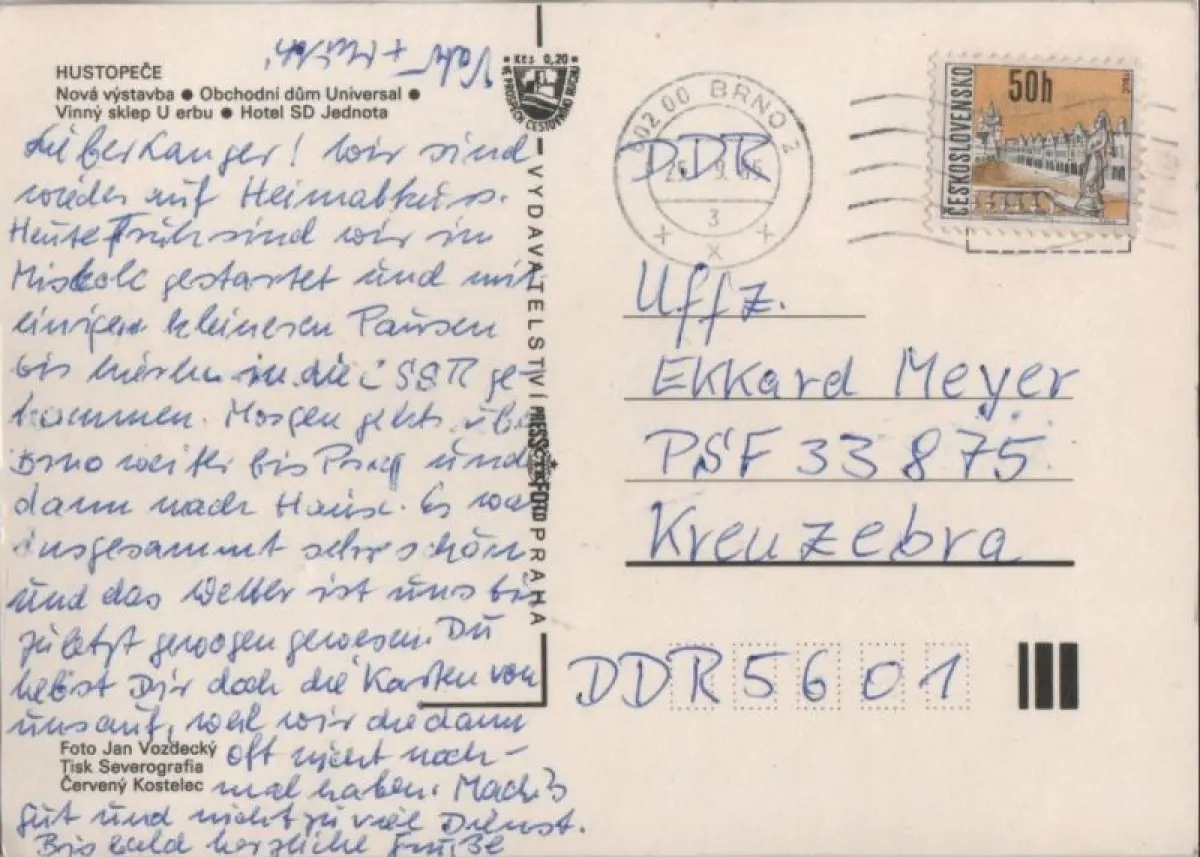 HUSTOPEČE
Nová výstavba ● Obchodní dům Universal ●
Vinný sklep U erbu ● Hotel SD Jednota
wir sind
wieder auf Heimatkurs.
Heute Früh sind wir in
Miskolc gestartet und mit
einigen kleineren Pausen
bis hierher in die ČSSR ge-
kommen. Morgen gehts über
Brno weiter bis Prag und
dann nach Hause. Es war
insgesammt sehr schön
und das Wetter ist uns bis
zuletzt gewogen gewesen. Du
hebst Dir doch die Karten von
uns auf, weil wir die dann
oft nicht noch-
mal haben. Mach's
gut und nicht zu viel Dienst.
Bis bald herzliche Grüße
Foto Jan Vozdecký
Tisk Severografia
Červený Kostelec
Kčs 0,20
VE PROSPĚCH CESTOVNÍHO RUCHU
VYDAVATELSTVÍ PRESSFOTO PRAHA
602 00 BRNO 2
3
x x x
DDR
ČESKOSLOVENSKO
50h
Uffz.
Ekkard Meyer
PSF 33 875
Kreuzebra
DDR 5601